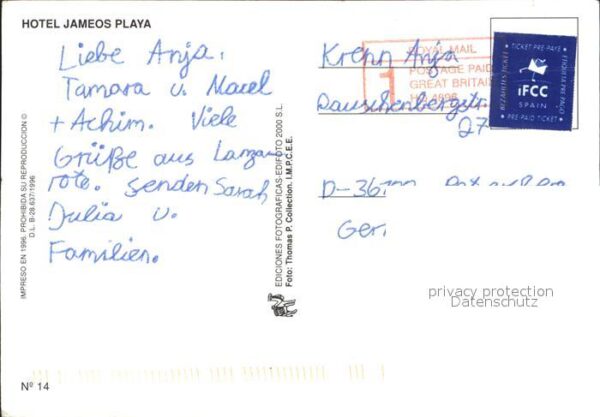 HOTEL JAMEOS PLAYA
Liebe Anja,
Tamara u. Marel
+ Achim. Viele
Grüße aus Lanza
rote. senden Sarah
Julia u.
Familien.
IMPRESO EN 1996. PROHIBIDA SU REPRODUCCION ©
D.L. B-28.637/1996
EDICIONES FOTOGRAFICAS-EDIFOTO 2000 S.L.
Foto: Thomas P. Collection. I.M.P.C.E.E.
ROYAL MAIL
1
POSTAGE PAID
GREAT BRITAIN
TICKET PRE-PAYE
iFCC
SPAIN
PRE PAID TICKET
BEZAHLTES TICKET
ETIQUETA PRE PAGO
Krenn Anja
27
D-36
Ger
privacy protection
Datenschutz
Nº 14